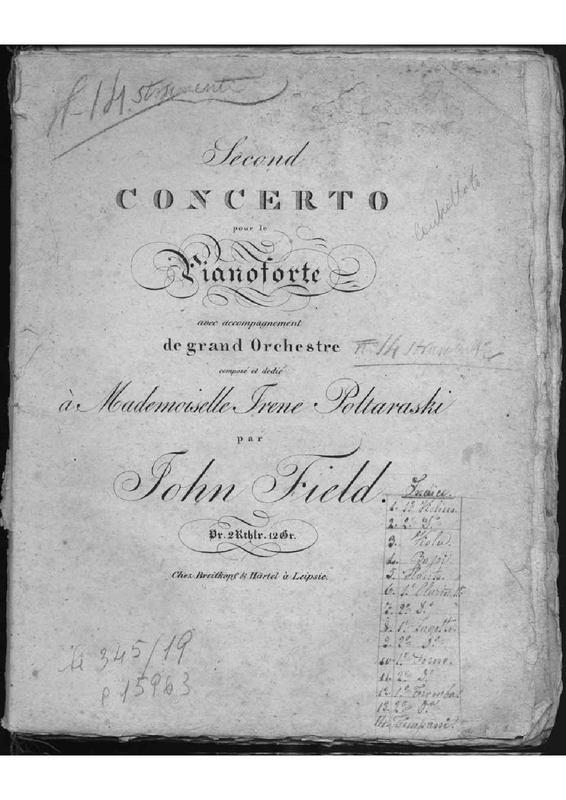 14 stromenti
Second
CONCERTO
pour le
Pianoforte
avec accompagnement
de grand Orchestre
14
composé et dedié
à Mademoiselle Irene Poltaraski
par
John Field.
Pr. 2 Rthlr. 12 Gr.
Chez Breitkopf & Härtel à Leipsic.
345/19
P 15963
Indice.
1. 1º Violino
2. 2º dº
3. Viola
4. Bassi
5. Flauto
6. 1º Clarinetto
7. 2º dº
8. 1º Fagotto
9. 2º dº
10. 1º Corno
11. 2º dº
12. 1º Tromba
13. 2º dº
14. Timpani.